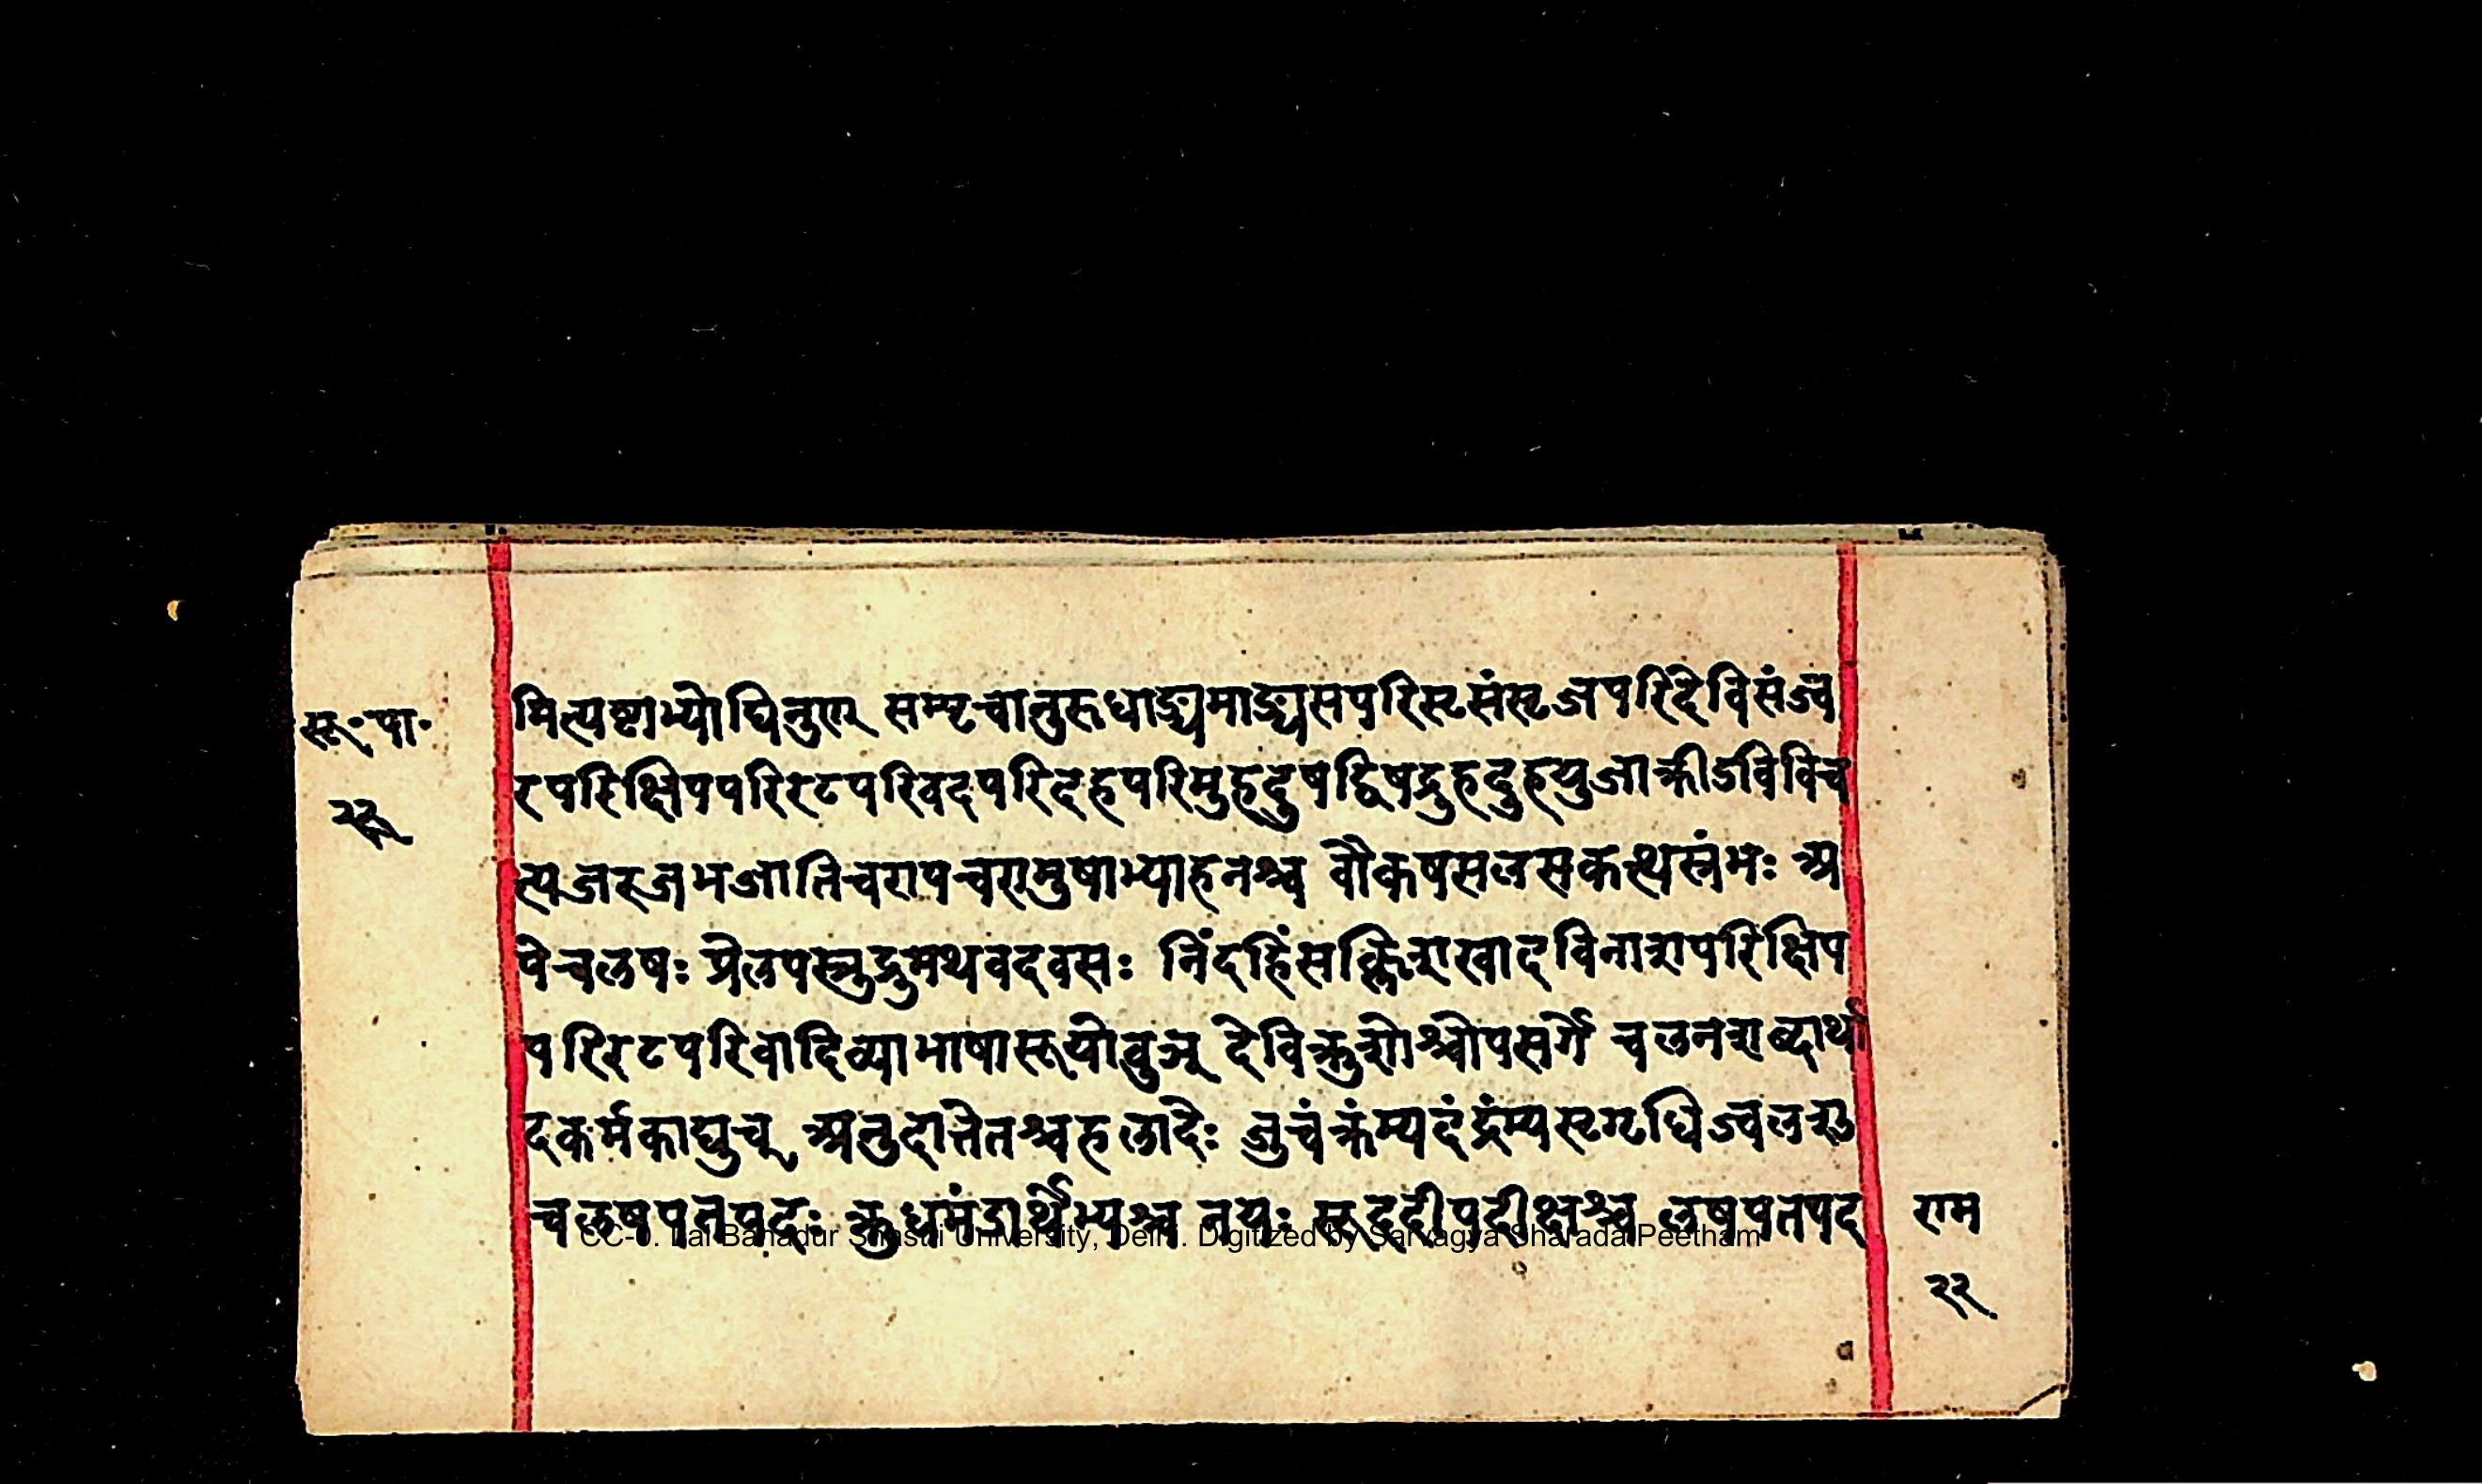 सू.पा.
२२
मित्यष्टाभ्योघिनुण् सम्पृचानुरुधाङ्यमाङ्यसपरिसृसंसृजपरिदेविसंज्व
रपरिक्षिपपरिरटपरिवदपरिदहपरिमुहदुषद्विषद्रुहदुहयुजाक्रीडविविच
त्यजरजभजातिचरापचरामुषाभ्याहनश्च वौकषलसकत्थस्रंभः अ
पेचलषः प्रेलपसृद्रुमथवदवसः निंदहिंसक्लिशखादविनाशपरिक्षिप
परिरटपरिवादिव्याभाषासूयोवुञ् देविक्रुशोश्चोपसर्गे चलनशब्दार्था
दकर्मकाद्युच् अनुदात्तेतश्चहलादेः जुचंक्रंम्यदंद्रंम्यसृगृधिज्वलशु
चलषपतपदः क्रुधमंडार्थेभ्यश्च नयः सूददीपदीक्षश्च लषपतपद
राम
२२
CC-0. Lal Bahadur Shastri University, Delhi. Digitized by Sarvagya Sharada Peetham